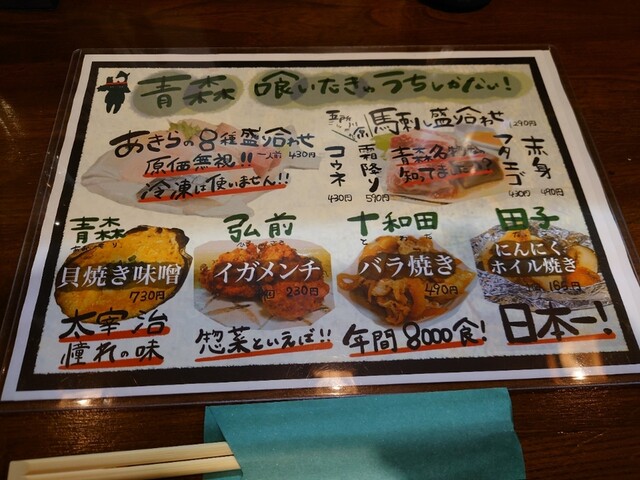 青森 喰いたきゃうちしかない!
あきらの8種盛り合わせ
原価無視!! 一人前 430円
冷凍は使いません!!
五所川原 馬刺し盛り合わせ
1290円
青森名物
知ってましたか?
コウネ
430円
霜降り
590円
フタエゴ
430円
赤身
490円
青森
貝焼き味噌
730円
太宰治
憧れの味
弘前
イガメンチ
230円
惣菜といえば!!
十和田
バラ焼き
490円
年間8000食!
田子
にんにく
ホイル焼き
日本一!